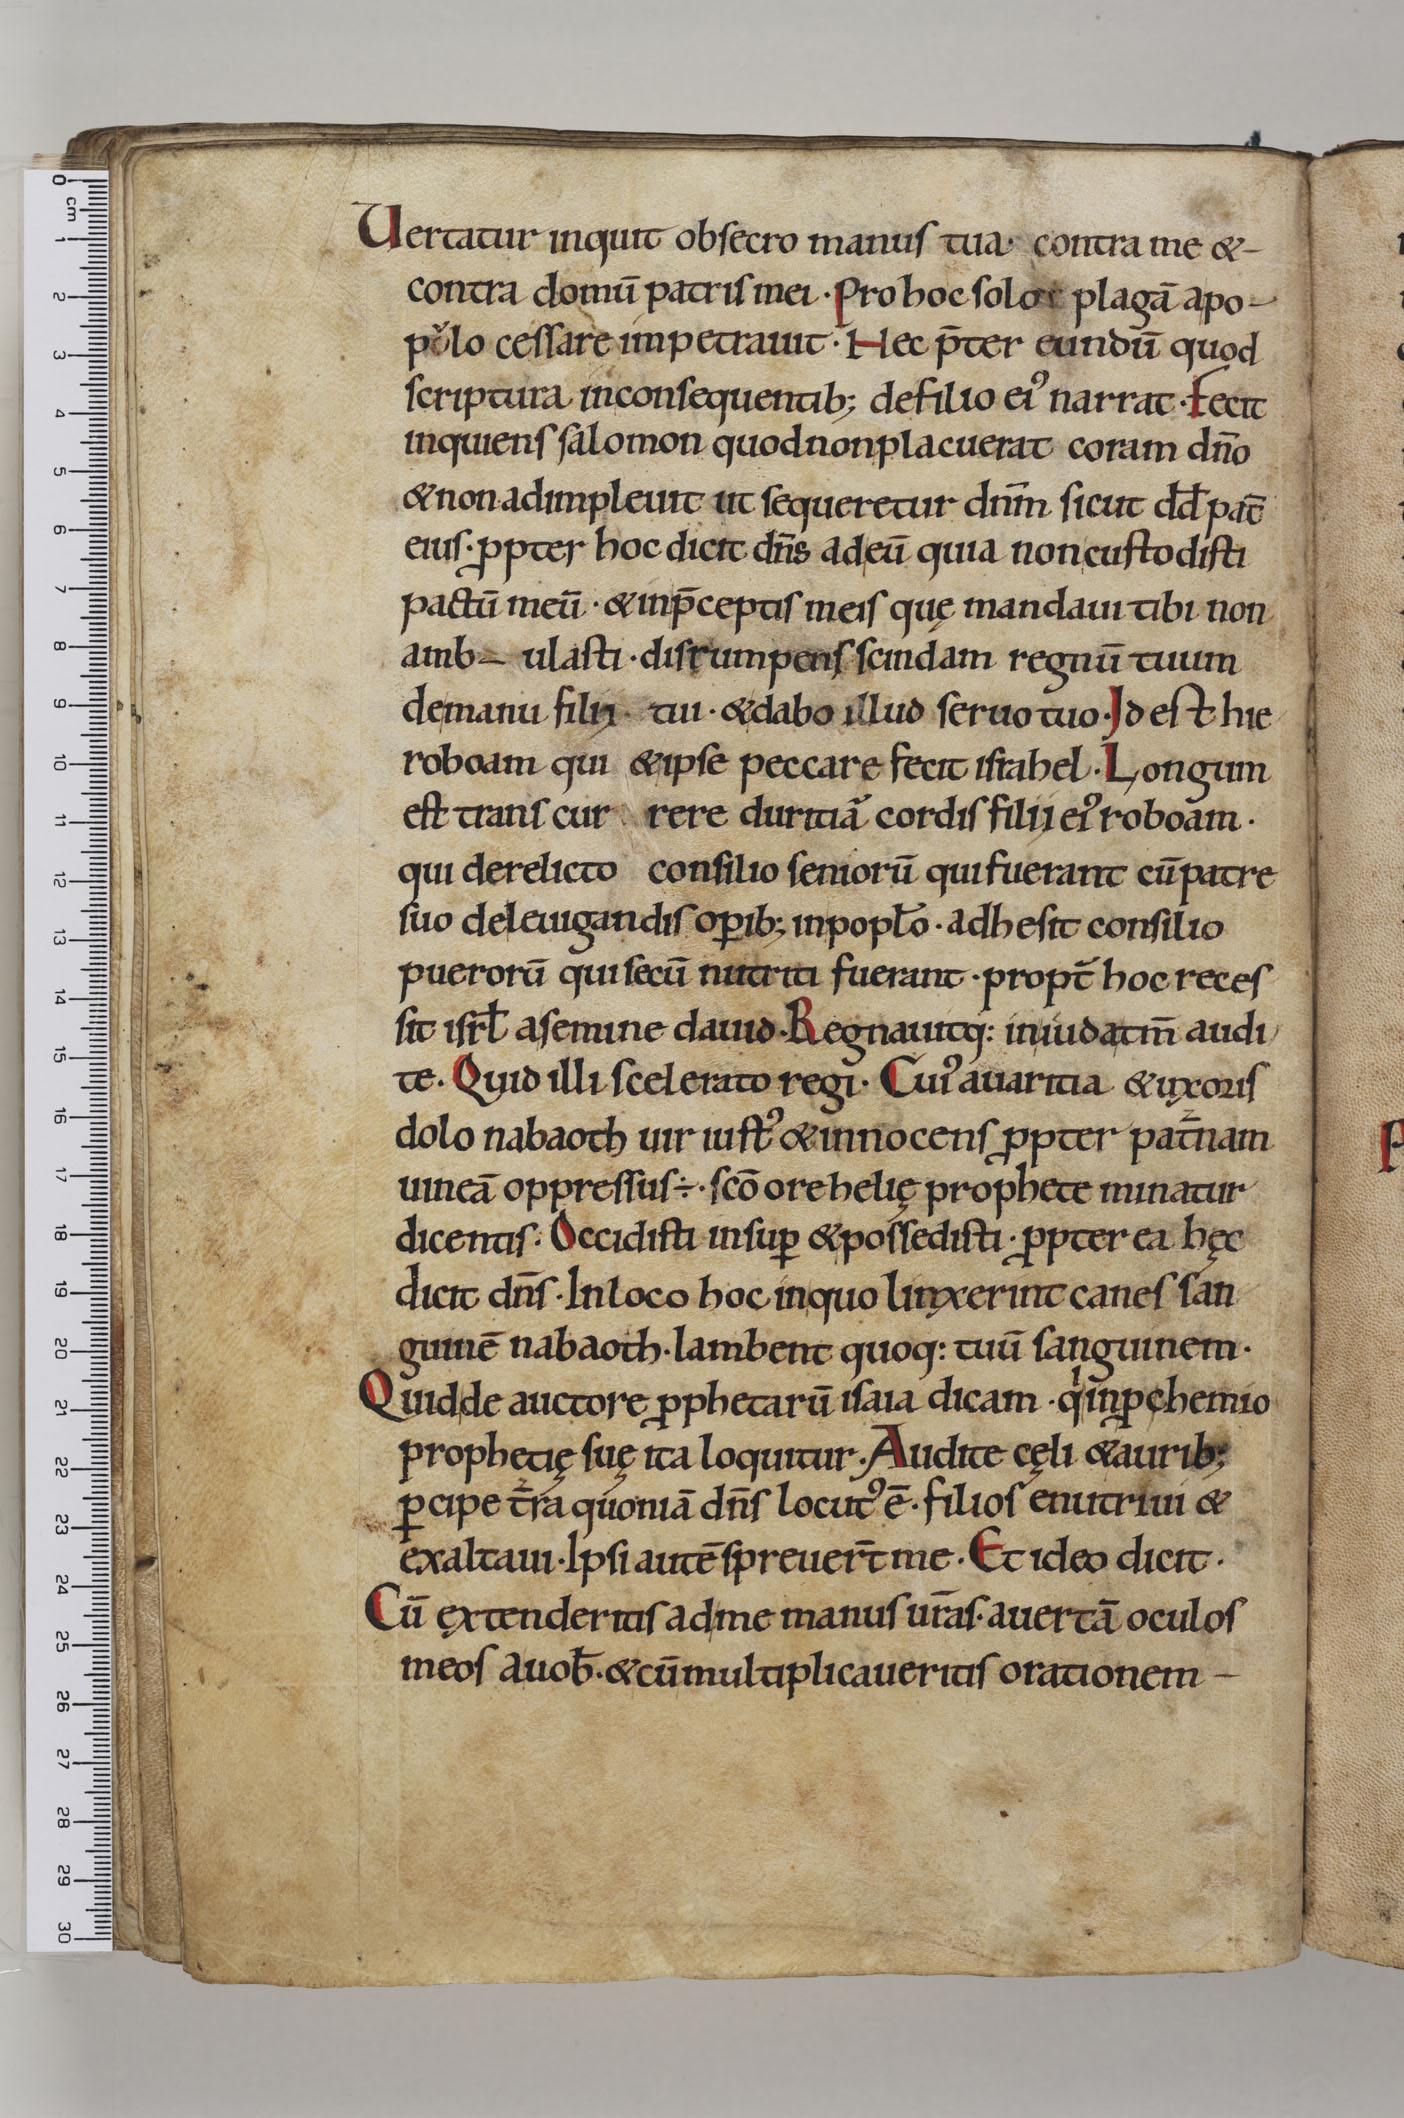 Uertatur inquit obsecro manus tua· contra me &-
contra domū patris mei · Pro hoc solo plagā a po-
pulo cessare impetrauit · Hec p̄ter eundū quod
scriptura in consequentib; de filio ei᾿ narrat · Fecit
inquiens salomon quod non placuerat coram dn̄o
& non adimpleuit ut sequeretur dn̄m sicut dd̄ pat̄
eius · ꝓpter hoc dicit dn̄s ad eū quia non custodisti
pactū meū · & in p̄ceptis meis quę mandaui tibi non
amb- ulasti · disrumpens scindam regnū tuum
de manu filii tui · & dabo illud seruo tuo · Id est hie
roboam qui & ipse peccare fecit israhel · Longum
est transcur rere duritiā cordis filii ei᾿ roboam ·
qui derelicto consilio seniorū qui fuerant cū patre
suo de leuigandis oꝑib; in popl̄o · adhesit consilio
puerorū qui secū nutriti fuerant · propt̄ hoc reces
sit isrl̄ a semine dauid · Regnauitq: in iudatm̄ audi
te · Quid illi scelerato regi · Cui᾿ auaritia & uxoris
dolo nabaoth uir iust᾿ & innocens ꝓpter pat̄nam
uineā oppressus ÷ · scō ore helię prophete minatur
dicentis · Occidisti insuꝑ & possedisti · ꝓpter ea hęc
dicit dn̄s · In loco hoc in quo linxerint canes san
guinē nabaoth · lambent quoq: tuū sanguinem ·
Quid de auctore ꝓphetarū isaia dicam · qi in ꝓchemio
prophetię suę ita loquitur · Audite cęli & aurib;
ꝑcipe t̄ra quoniā dn̄s locut᾿ ē · filios enutriui &
exaltaui · Ipsi autē spreuer̄t me · Et ideo dicit ·
Cū extenderitis ad me manus ur̄as · auertā oculos
meos a uob̄ · & cū multiplicaueritis orationem -
0 cm
1
2
3
4
5
6
7
8
9
10
11
12
13
14
15
16
17
18
19
20
21
22
23
24
25
26
27
28
29
30